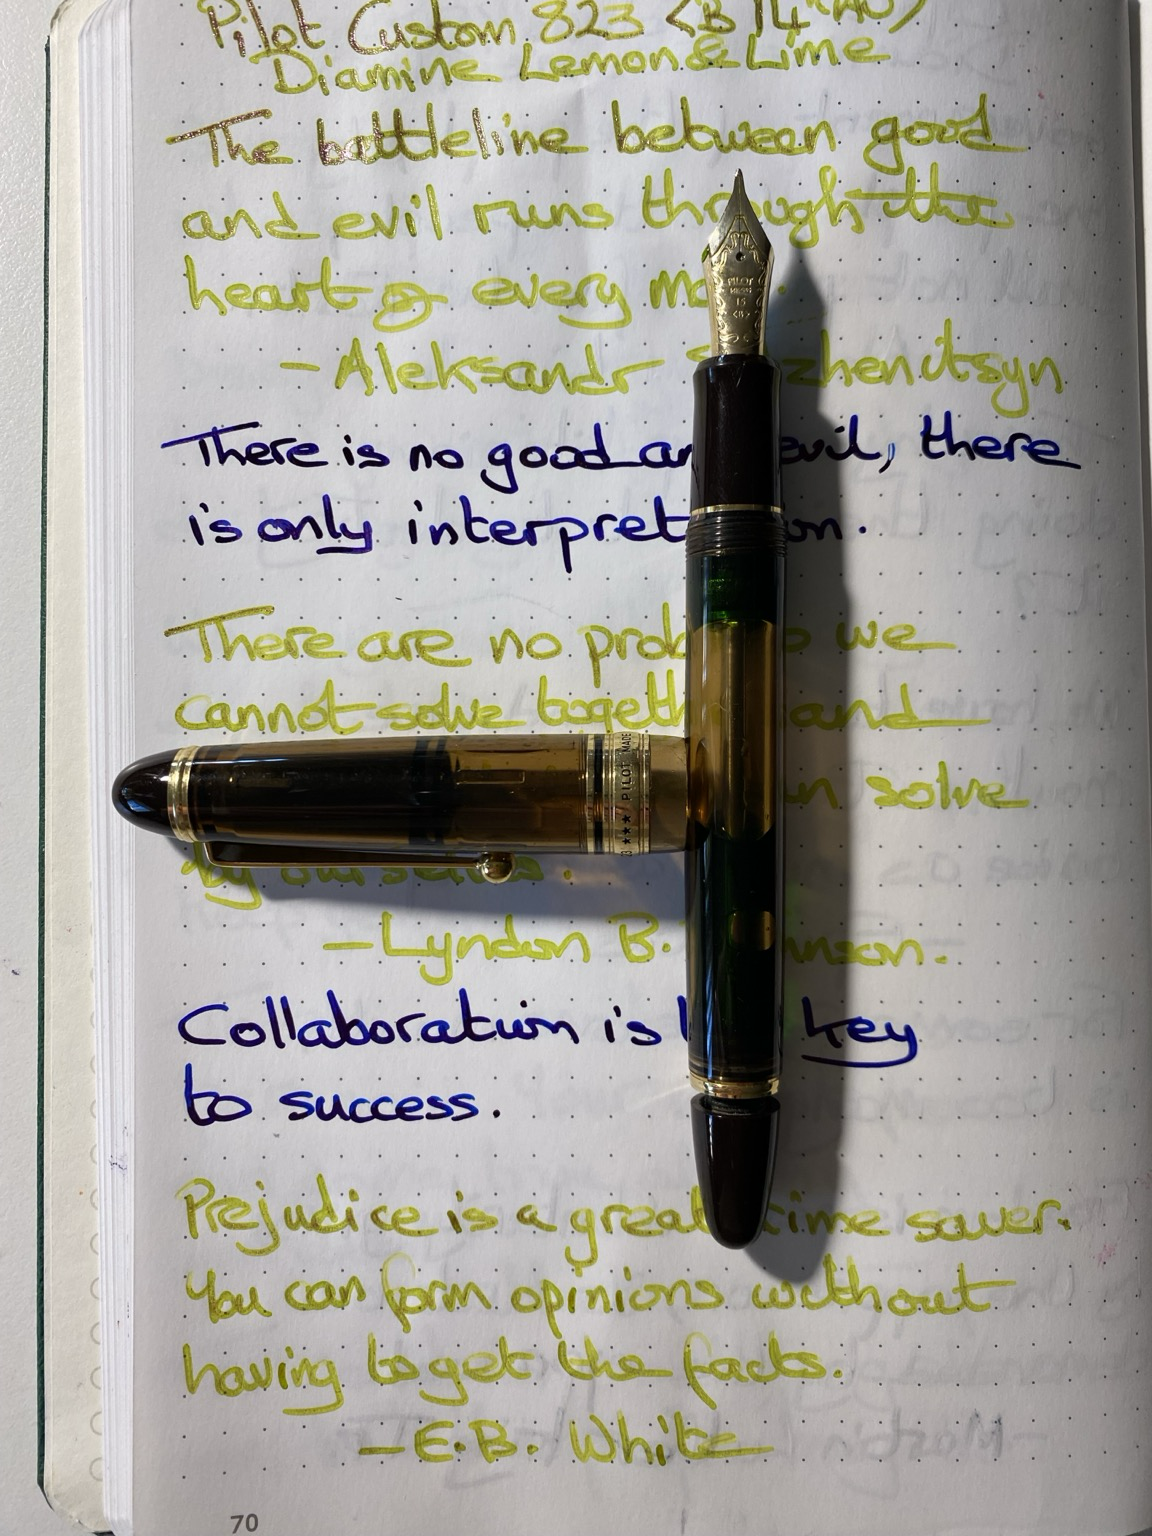 Pilot Custom 823 <B 14K AU>
Diamine Lemon & Lime
The battleline between good
and evil runs through the
heart of every
- Aleksandr
There is no good evil, there
is only
There are no we
cannot solve and
solve
by ourselves.
- Lyndon B.
Collaboration is key
to success.
Prejudice is a great time saver.
You can form opinions without
having to get the facts.
- E.B. White
70
PILOT
15
<B>
★★★ PILOT MADE